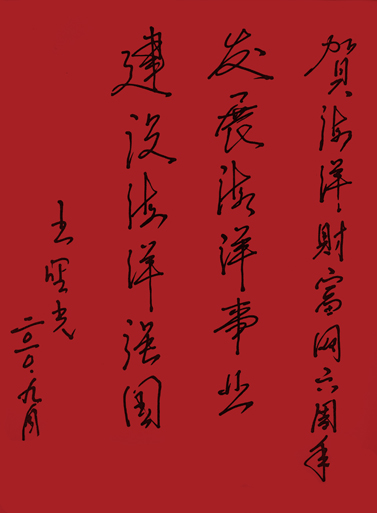 賀海洋財富网六周年
发展海洋事业
建设海洋强国
王曙光
二〇一〇.九月